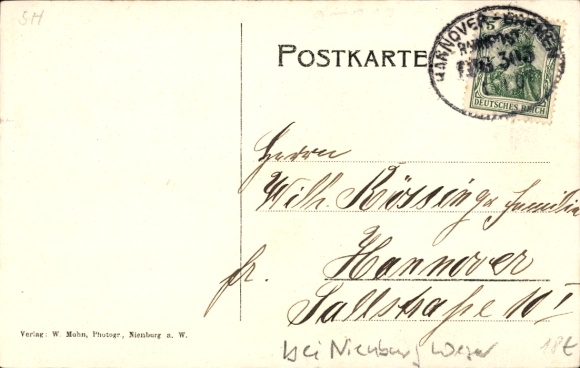 SH
POSTKARTE
HANNOVER - BREMEN
BAHNPOST
ZUG 303
5
DEUTSCHES REICH
Herrn
Wilh. Rössing u. Familie
fr. Hannover
Fallstraße 10 I
Verlag: W. Mohn, Photogr., Nienburg a. W.
bei Nienburg Weser
18€